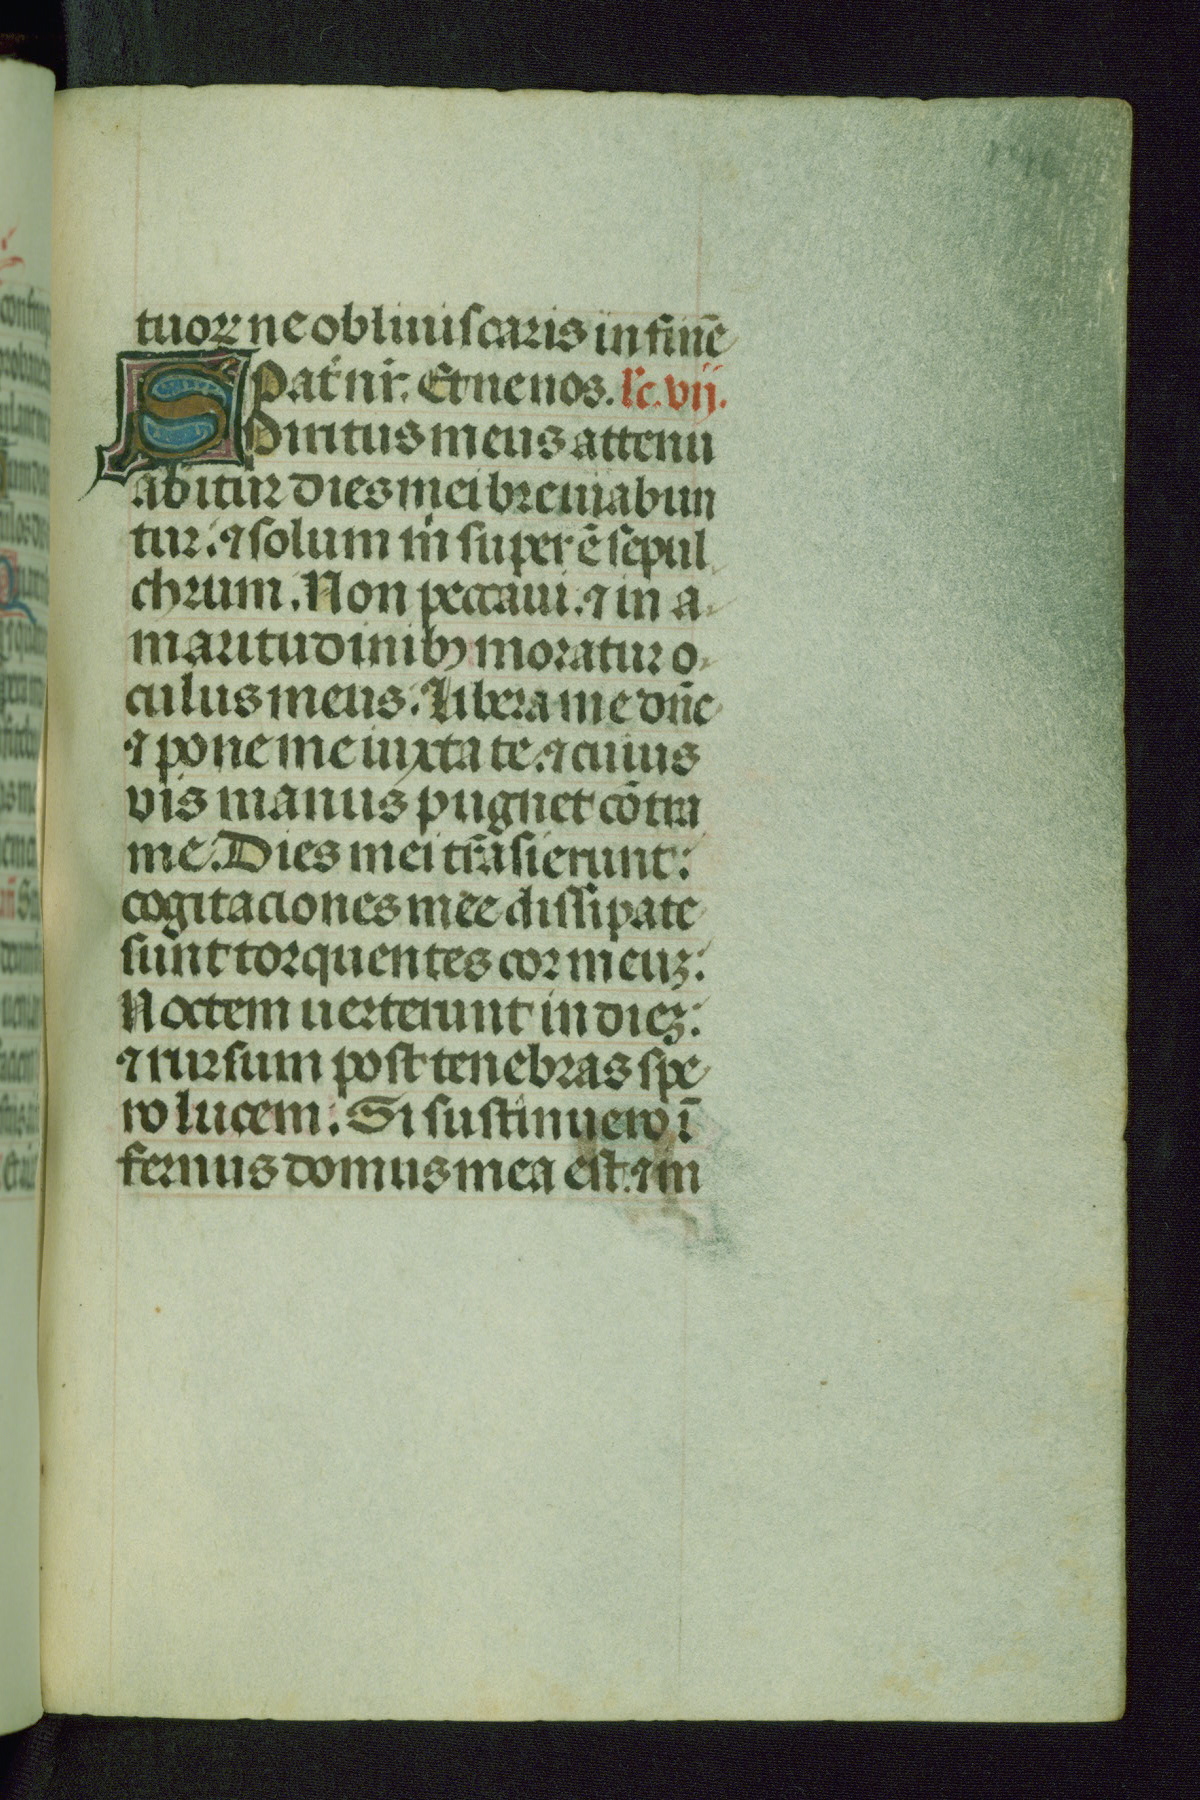 tuoꝝ ne obliuiscaris in finē
Pat̄ nr̄. Et ne nos. lc̄. vij.
Spiritus meus attenu
abitur dies mei breuiabun
tur: ⁊ solum m̄ superē sepul
chrum. Non peccaui. ⁊ in a-
maritudinibꝫ moratur o-
culus meus. Libera me dn̄e
⁊ pone me iuxta te. ⁊ cuius
vis manus pugnet cōtra
me. Dies mei trāsierunt:
cogitaciones mee dissipate
sunt torquentes cor meuꝫ:
Noctem uerterunt in dieꝫ:
⁊ rursum post tenebras spe
ro lucem: Si sustinuero ī
fernus domus mea est. ⁊ in